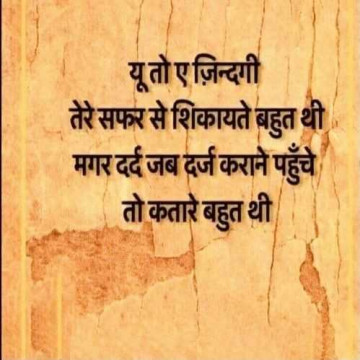 यू तो ए ज़िन्दगी
तेरे सफर से शिकायते बहुत थी
मगर दर्द जब दर्ज कराने पहुँचे
तो कतारे बहुत थी